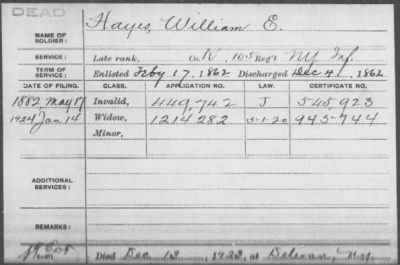 DEAD
NAME OF SOLDIER: Hayes, William E.
SERVICE: Late rank, Co. K, 105 Reg't NY Inf.
TERM OF SERVICE: Enlisted Feby 17, 1862 Discharged Dec 4, 1862
DATE OF FILING. CLASS. APPLICATION NO. LAW. CERTIFICATE NO.
1882, May 17 Invalid, 449,742 J 545,923
1924 Jan. 14 Widow, 1214282 5-1-20 945-744
Minor,
ADDITIONAL SERVICES:
REMARKS:
Died Dec 12, 1923, at Delevan, N.Y.